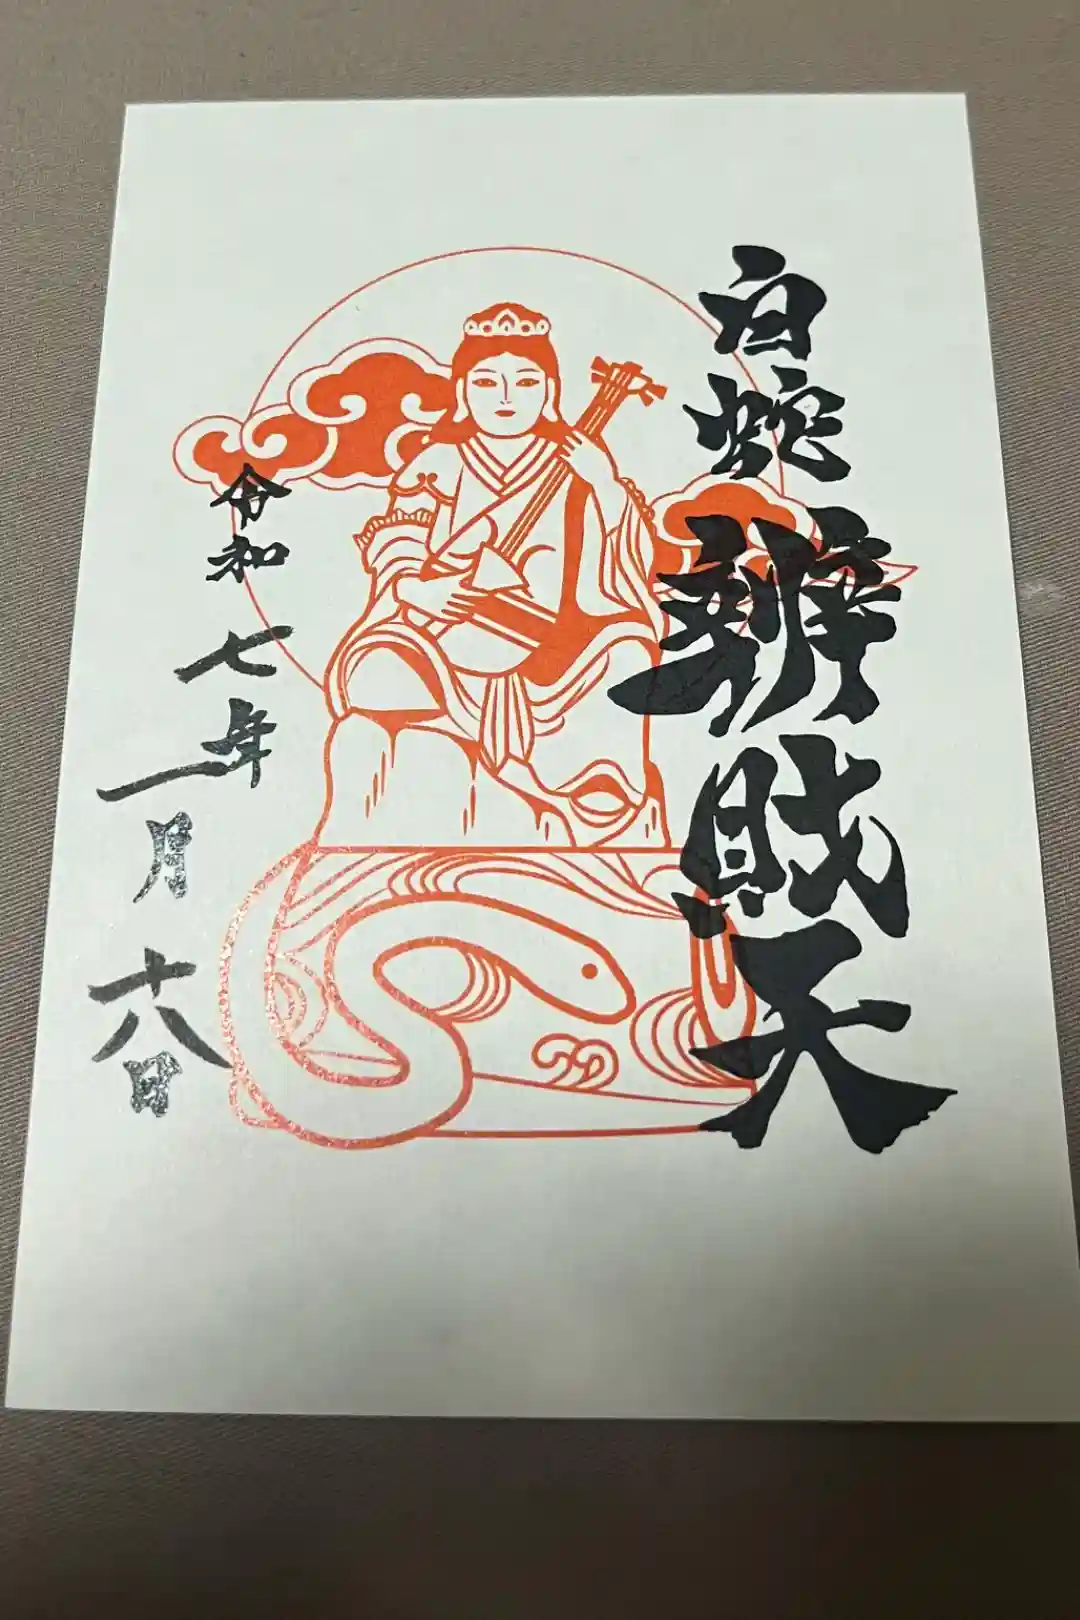 白蛇辨財天
令和七年一月十八日